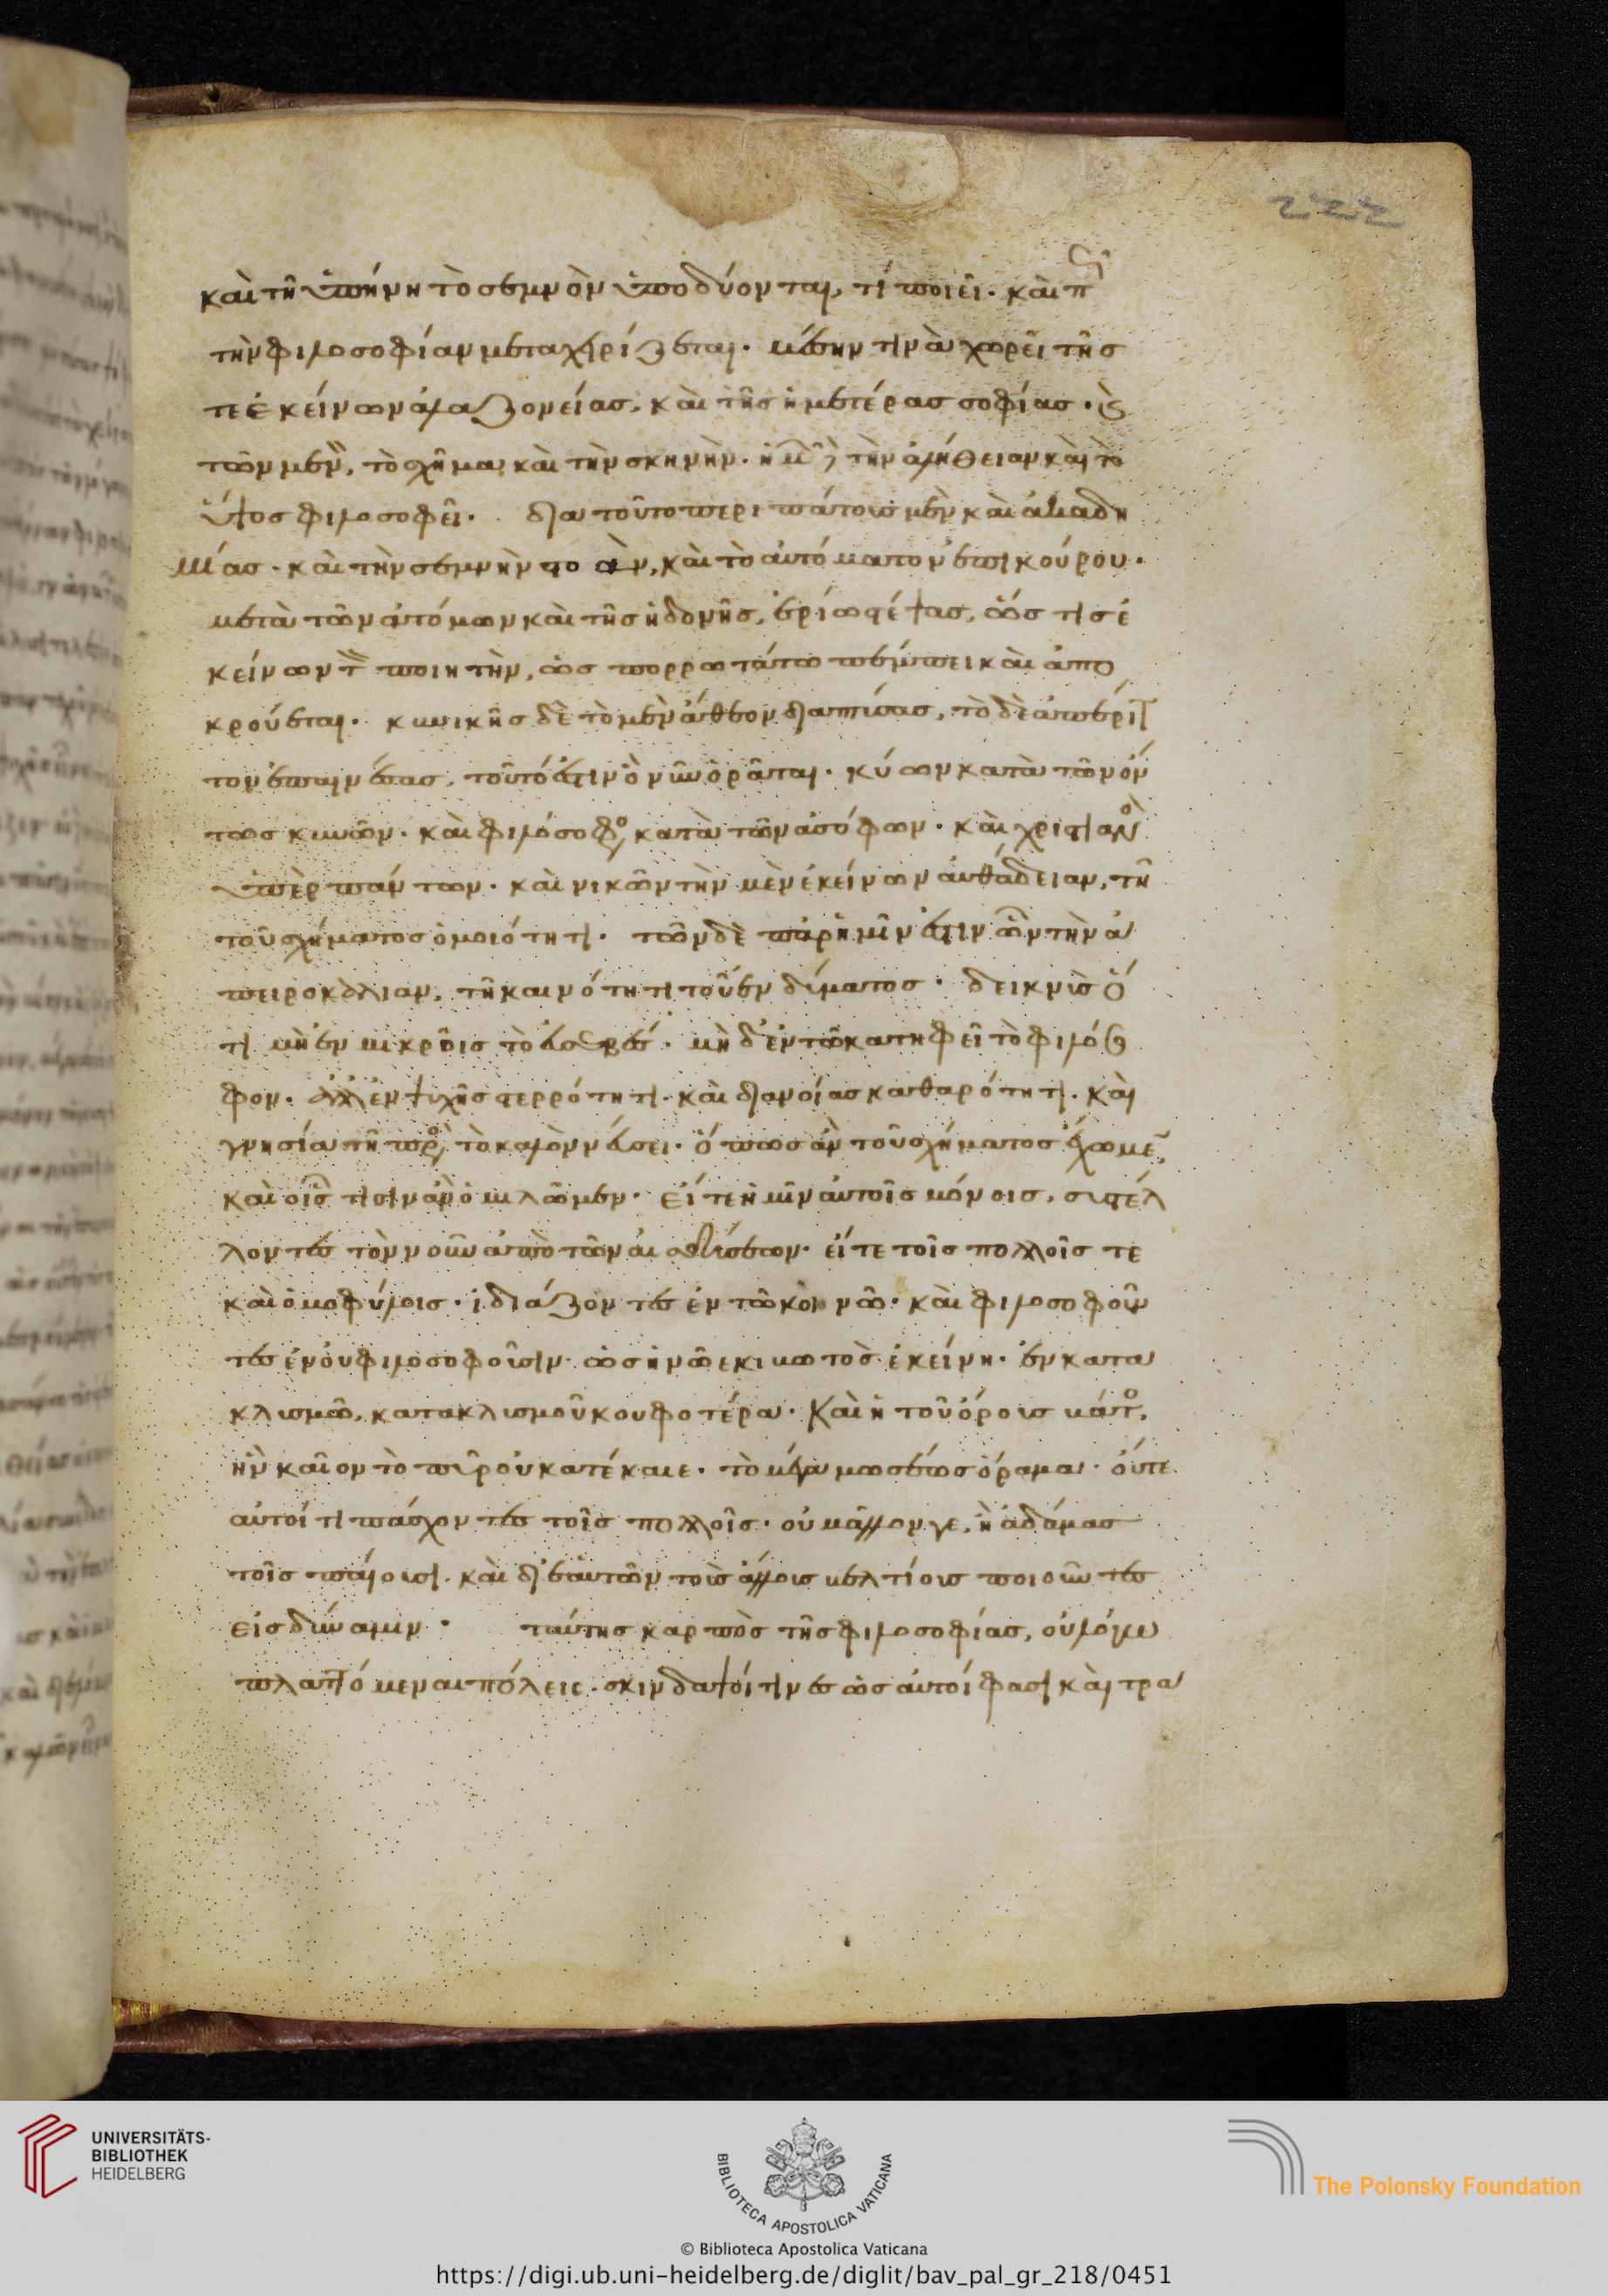 καὶ τῆ ὑπήνη τὸ σεμνὸν ὑποδύονται, τί ποιεῖ· καὶ πῶς
τὴν φιλοσοφίαν μεταχειρίζεται· μέσην τινὰ χωρεῖ τῆς
τε ἐκείνων ἀλαζονείας, καὶ τῆς ἡμετέρας σοφίας· καὶ
τῶν μὲν, τὸ σχῆμα καὶ τὴν σκηνὴν· ἡμῶν δὲ τὴν ἀλήθειαν καὶ τὸ
ὕψος φιλοσοφεῖ· δια τοῦτο περιπάτους μὲν καὶ ἀκαδη
μίας· καὶ τὴν σεμνὴν στοὰν, καὶ τὸ αὐτόματον ἐπικούρου·
μετὰ τῶν ἀτόμων καὶ τῆς ἡδονῆς, ἐρίω στέψας, ὥς τις ἐ
κείνων τὸν ποιητὴν, ὡς πορρωτάτω πέμπει καὶ ἀπο
κρούεται· κυνικῆς δὲ τὸ μὲν ἄθεον διαπτύσας, τὸ δὲ ἀπέριτ
τον ἐπαινέσας, τοῦτό ἐστιν ὃ νῦν ὁρᾶται· κύων κατὰ τῶν ὄν
τως κυνῶν· καὶ φιλόσοφος κατὰ τῶν ἀσόφων· καὶ χριστιανὸς
ὑπὲρ πάντων· καὶ νικῶν τὴν μὲν ἐκείνων αὐθάδειαν, τῆ
τοῦ σχήματος ὁμοιότητι· τῶν δὲ παρ' ἡμῖν ἔστιν ὧν τὴν ἀ
πειροκαλίαν, τῆ καινότητι τοῦ ἐνδύματος· δεικνὺς ὅ
τι μὴ ἐν μικροῖς τὸ εὐσεβές· μὴ δ' ἐν τῶ κατηφεῖ τὸ φιλόσο
φον· ἀλλ' ἐν ψυχῆς στερρότητι· καὶ διανοίας καθαρότητι· καὶ
γνησία τῆ πρὸς τὸ καλὸν νεύσει· ὅπως ἂν τοῦ σχήματος ἔχωμεν,
καὶ οἷς τισιν ἂν ὁμιλῶμεν· εἴτε ἡμῖν αὐτοῖς μόνοις, συστέλ
λοντες τὸν νοῦν ἀπὸ τῶν αἰσθήσεων· εἴτε τοῖς πολλοῖς τε
καὶ ὁμοφύλοις· ἰδιάζοντες ἐν τῶ κοινῶ· καὶ φιλοσοφοῦν
τες ἐν οὐ φιλοσοφοῦσιν· ὡς ἡ νῶε κιβωτὸς ἐκείνη· ἐν κατα
κλυσμῶ, κατακλυσμοῦ κουφοτέρα· καὶ ἡ τοῦ ὄρους βάτος,
ἣν καῖον τὸ πῦρ οὐ κατέκαιε· τὸ μέγα μωσέως ὅραμα· οὔτε
αὐτοί τι πάσχοντες τοῖς πολλοῖς· οὐ μᾶλλόν γε, ἢ ἀδάμας
τοῖς παίουσι· καὶ δι' ἑαυτῶν τοὺς ἄλλους βελτίους ποιοῦντες
εἰς δύναμιν· ταύτης καρπὸς τῆς φιλοσοφίας, οὐ λόγω
πλαττόμεναι πόλεις· σκινδαψοί τινες ὡς αὐτοί φασι καὶ τρα
222
UNIVERSITÄTS-
BIBLIOTHEK
HEIDELBERG
BIBLIOTECA APOSTOLICA VATICANA
The Polonsky Foundation
© Biblioteca Apostolica Vaticana
https://digi.ub.uni-heidelberg.de/diglit/bav_pal_gr_218/0451